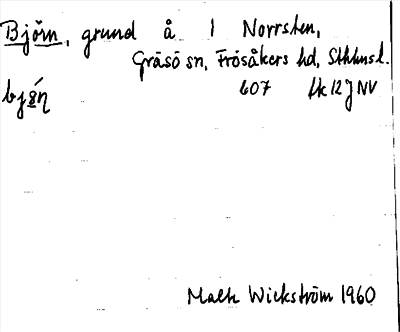 Björn, grund å l Norrsten,
Gräsö sn, Frösåkers hd, Sthlmsl.
607 fk 12J NV
Math Wickström 1960